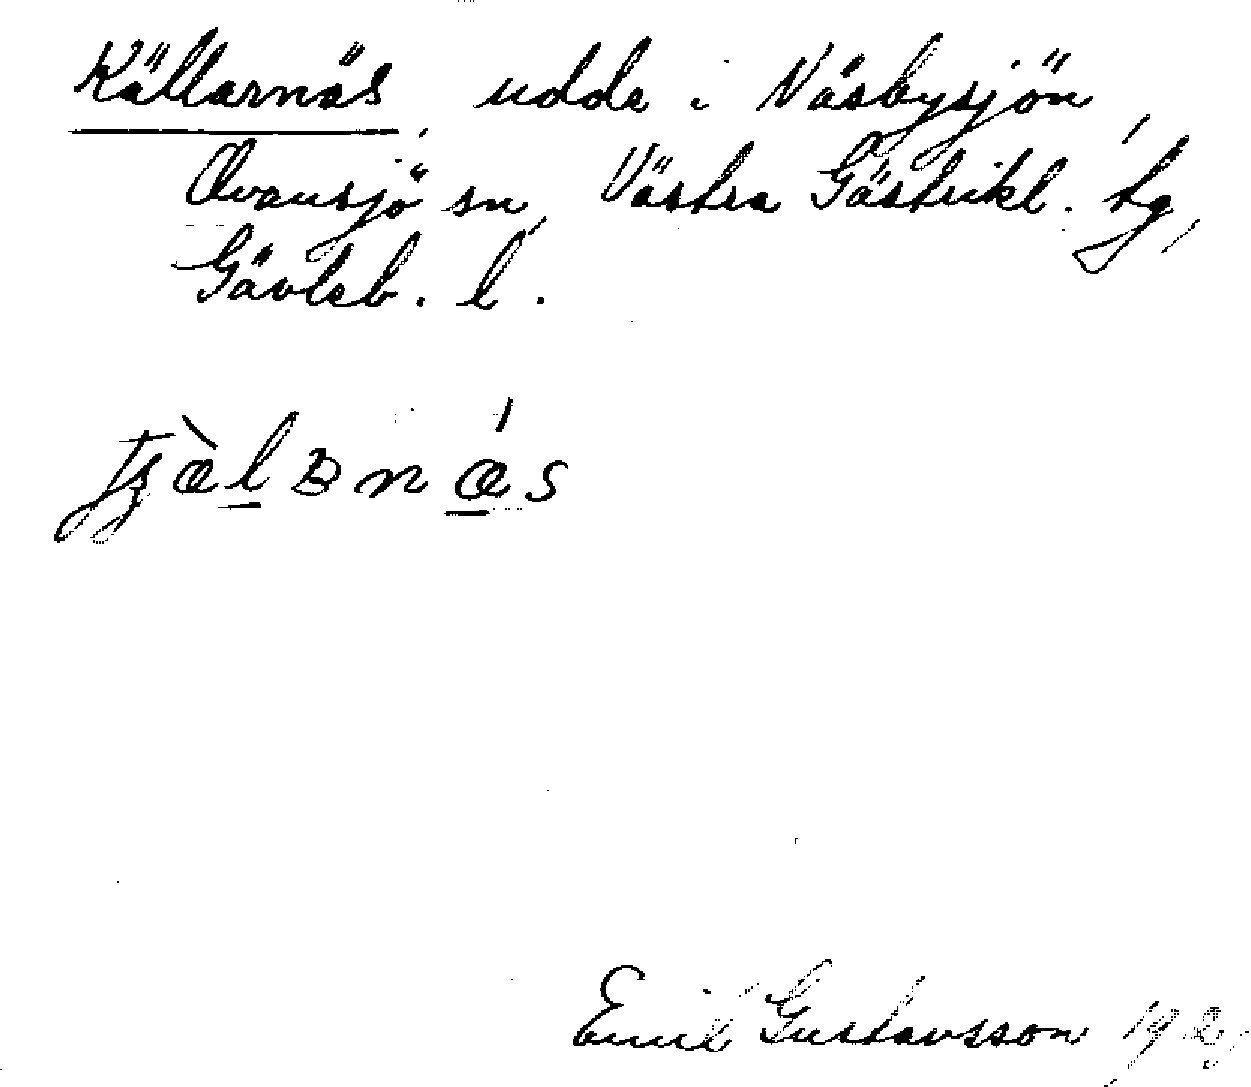 Källarnäs, udde i Näsbysjön,
Ovansjö sn, Västra Gästrikl. tg,
Gävleb. l.
Emil Gustavsson